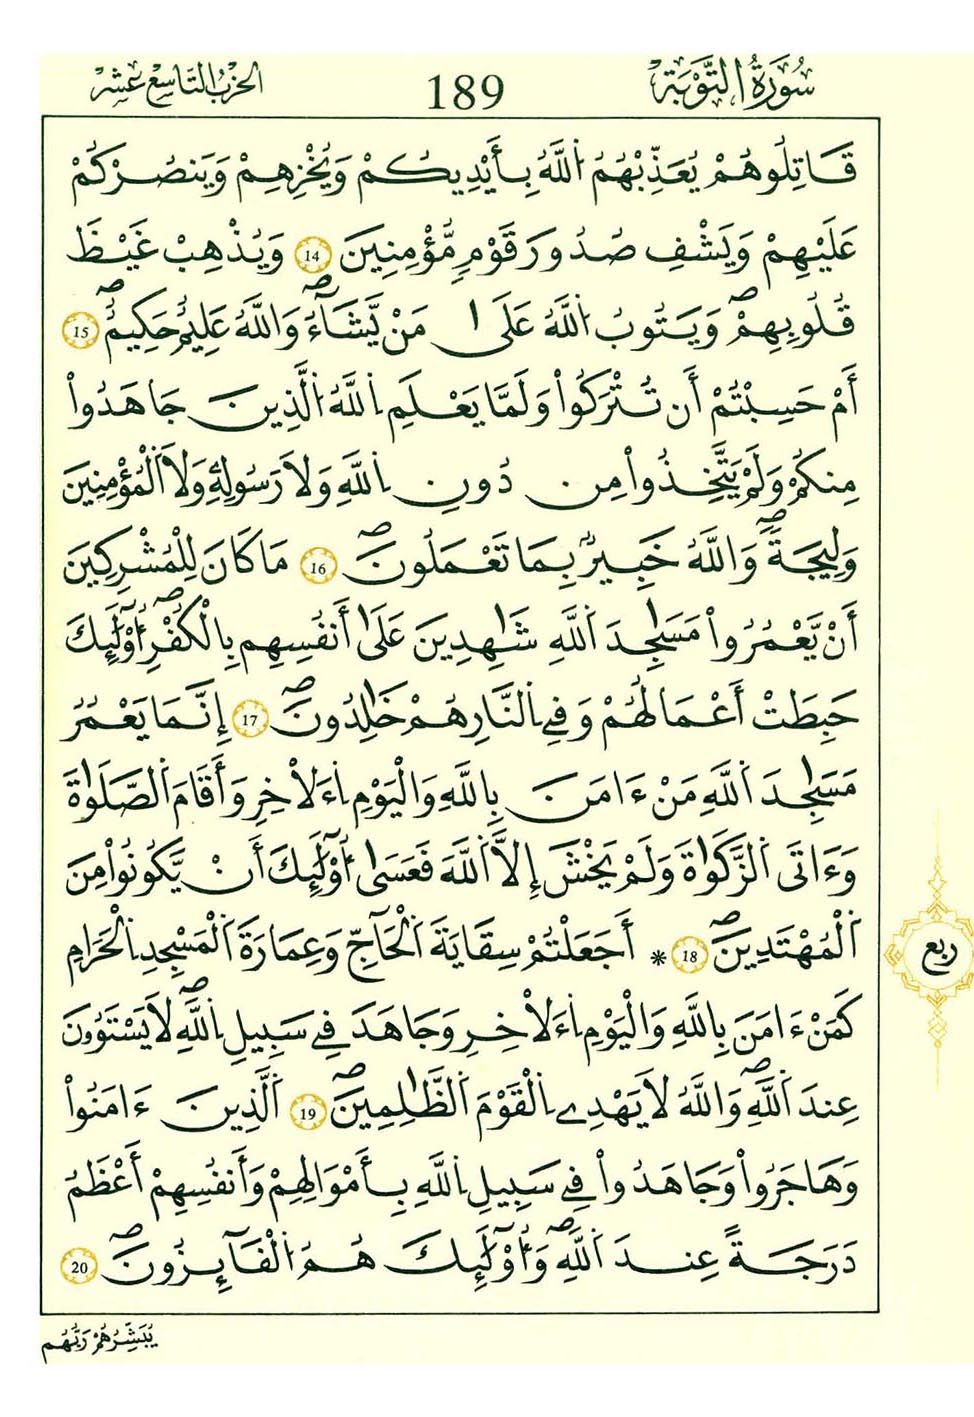 سُورَةُ التَّوْبَةِ 189 الحِزْبُ التَّاسِعَ عَشَرَ
قَاتِلُوهُمْ يُعَذِّبْهُمُ اللَّهُ بِأَيْدِيكُمْ وَيُخْزِهِمْ وَيَنصُرْكُمْ
عَلَيْهِمْ وَيَشْفِ صُدُورَ قَوْمٍ مُّؤْمِنِينَ 14 وَيُذْهِبْ غَيْظَ
قُلُوبِهِمْ وَيَتُوبُ اللَّهُ عَلَىٰ مَنْ يَّشَآءُ وَاللَّهُ عَلِيمٌ حَكِيمٌ 15
أَمْ حَسِبْتُمْ أَن تُتْرَكُواْ وَلَمَّا يَعْلَمِ اللَّهُ الَّذِينَ جَاهَدُواْ
مِنكُمْ وَلَمْ يَتَّخِذُواْ مِن دُونِ اللَّهِ وَلَا رَسُولِهِ وَلَا الْمُؤْمِنِينَ
وَلِيجَةً وَاللَّهُ خَبِيرٌ بِمَا تَعْمَلُونَ 16 مَا كَانَ لِلْمُشْرِكِينَ
أَنْ يَّعْمُرُواْ مَسَٰجِدَ اللَّهِ شَٰهِدِينَ عَلَىٰ أَنفُسِهِم بِالْكُفْرِ أُوْلَٰٓئِكَ
حَبِطَتْ أَعْمَالُهُمْ وَفِي النَّارِ هُمْ خَٰلِدُونَ 17 إِنَّمَا يَعْمُرُ
مَسَٰجِدَ اللَّهِ مَنْ ءَامَنَ بِاللَّهِ وَالْيَوْمِ اءَلَاْخِرِ وَأَقَامَ الصَّلَوٰةَ
وَءَاتَى الزَّكَوٰةَ وَلَمْ يَخْشَ إِلَّا اللَّهَ فَعَسَىٰ أُوْلَٰٓئِكَ أَنْ يَّكُونُواْ مِنَ
الْمُهْتَدِينَ 18 * أَجَعَلْتُمْ سِقَايَةَ الْحَآجِّ وَعِمَارَةَ الْمَسْجِدِ الْحَرَامِ
كَمَنْ ءَامَنَ بِاللَّهِ وَالْيَوْمِ اءَلَاْخِرِ وَجَاهَدَ فِي سَبِيلِ اللَّهِ لَا يَسْتَوُونَ
عِندَ اللَّهِ وَاللَّهُ لَا يَهْدِي الْقَوْمَ الظَّٰلِمِينَ 19 الَّذِينَ ءَامَنُواْ
وَهَاجَرُواْ وَجَاهَدُواْ فِي سَبِيلِ اللَّهِ بِأَمْوَالِهِمْ وَأَنفُسِهِمْ أَعْظَمُ
دَرَجَةً عِندَ اللَّهِ وَأُوْلَٰٓئِكَ هُمُ الْفَآئِزُونَ 20
ربع
يُبَشِّرُهُمْ رَبُّهُم